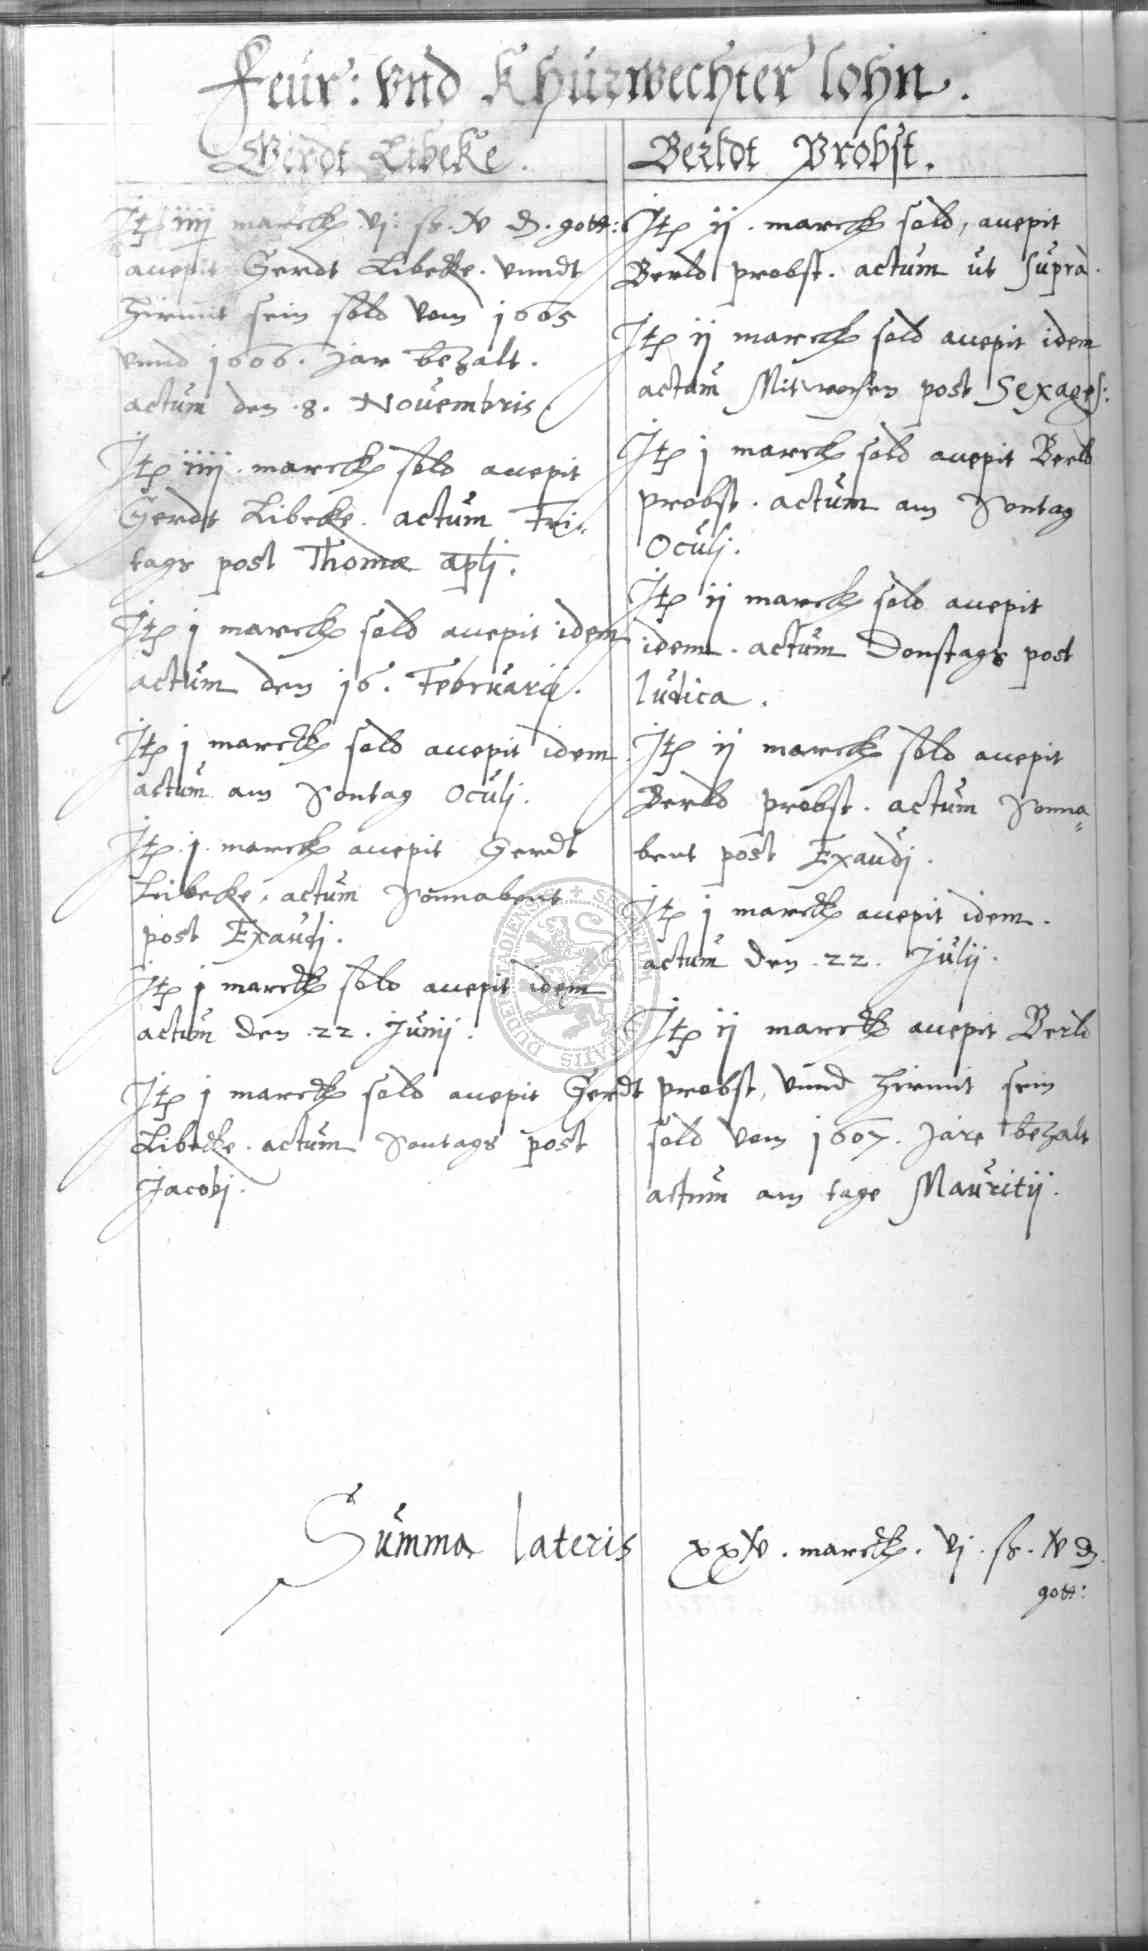 Feür: vnd Khürwechter lohn.
Gerdt Libeke.
Jtem iiij marck vj: ß. xv d. gott:
accepit Gerdt Libeke. vnndt
hirmit sein sold vom 1605
vnnd 1606. Jar bezalt.
actum den .8. Nouembris.
Jtem iiij. marck sold accepit
Gerdt Libeke. actum Fri-
tags post Thomæ apli.
Jtem j marck sold accepit idem
actum den 16. Februarij.
Jtem j marck sold accepit idem
actum am Sontag Oculj.
Jtem .j. marck accepit Gerdt
Libecke, actum Sonnabent
post Exaudj.
Jtem j marck sold accepit idem
actum den .22. Junij.
Jtem j marck sold accepit Gerdt
Libecke. actum Sontags post
Jacobj.
Berldt Probst.
Jtem ij. marck sold, accepit
Berld probst. actum ut supra.
Jtem ij marck sold accepit idem
actum Mitwochen post Sexages:
Jtem j marck sold accepit Berld
probst. actum am Sontag
Oculj.
Jtem ij marck sold accepit
idem. actum Donstags post
Iudica.
Jtem ij marck sold accepit
Berld probst. actum Sonna-
bent post Exaudj.
Jtem j marck accepit idem.
actum den .22. Julij.
Jtem ij marck accepit Berld
probst, vnnd hirmit sein
sold vom 1607. Jare bezalt
actum am tage Mauritij.
Summa lateris xxv. marck. vj. ß. xv d.
gott: